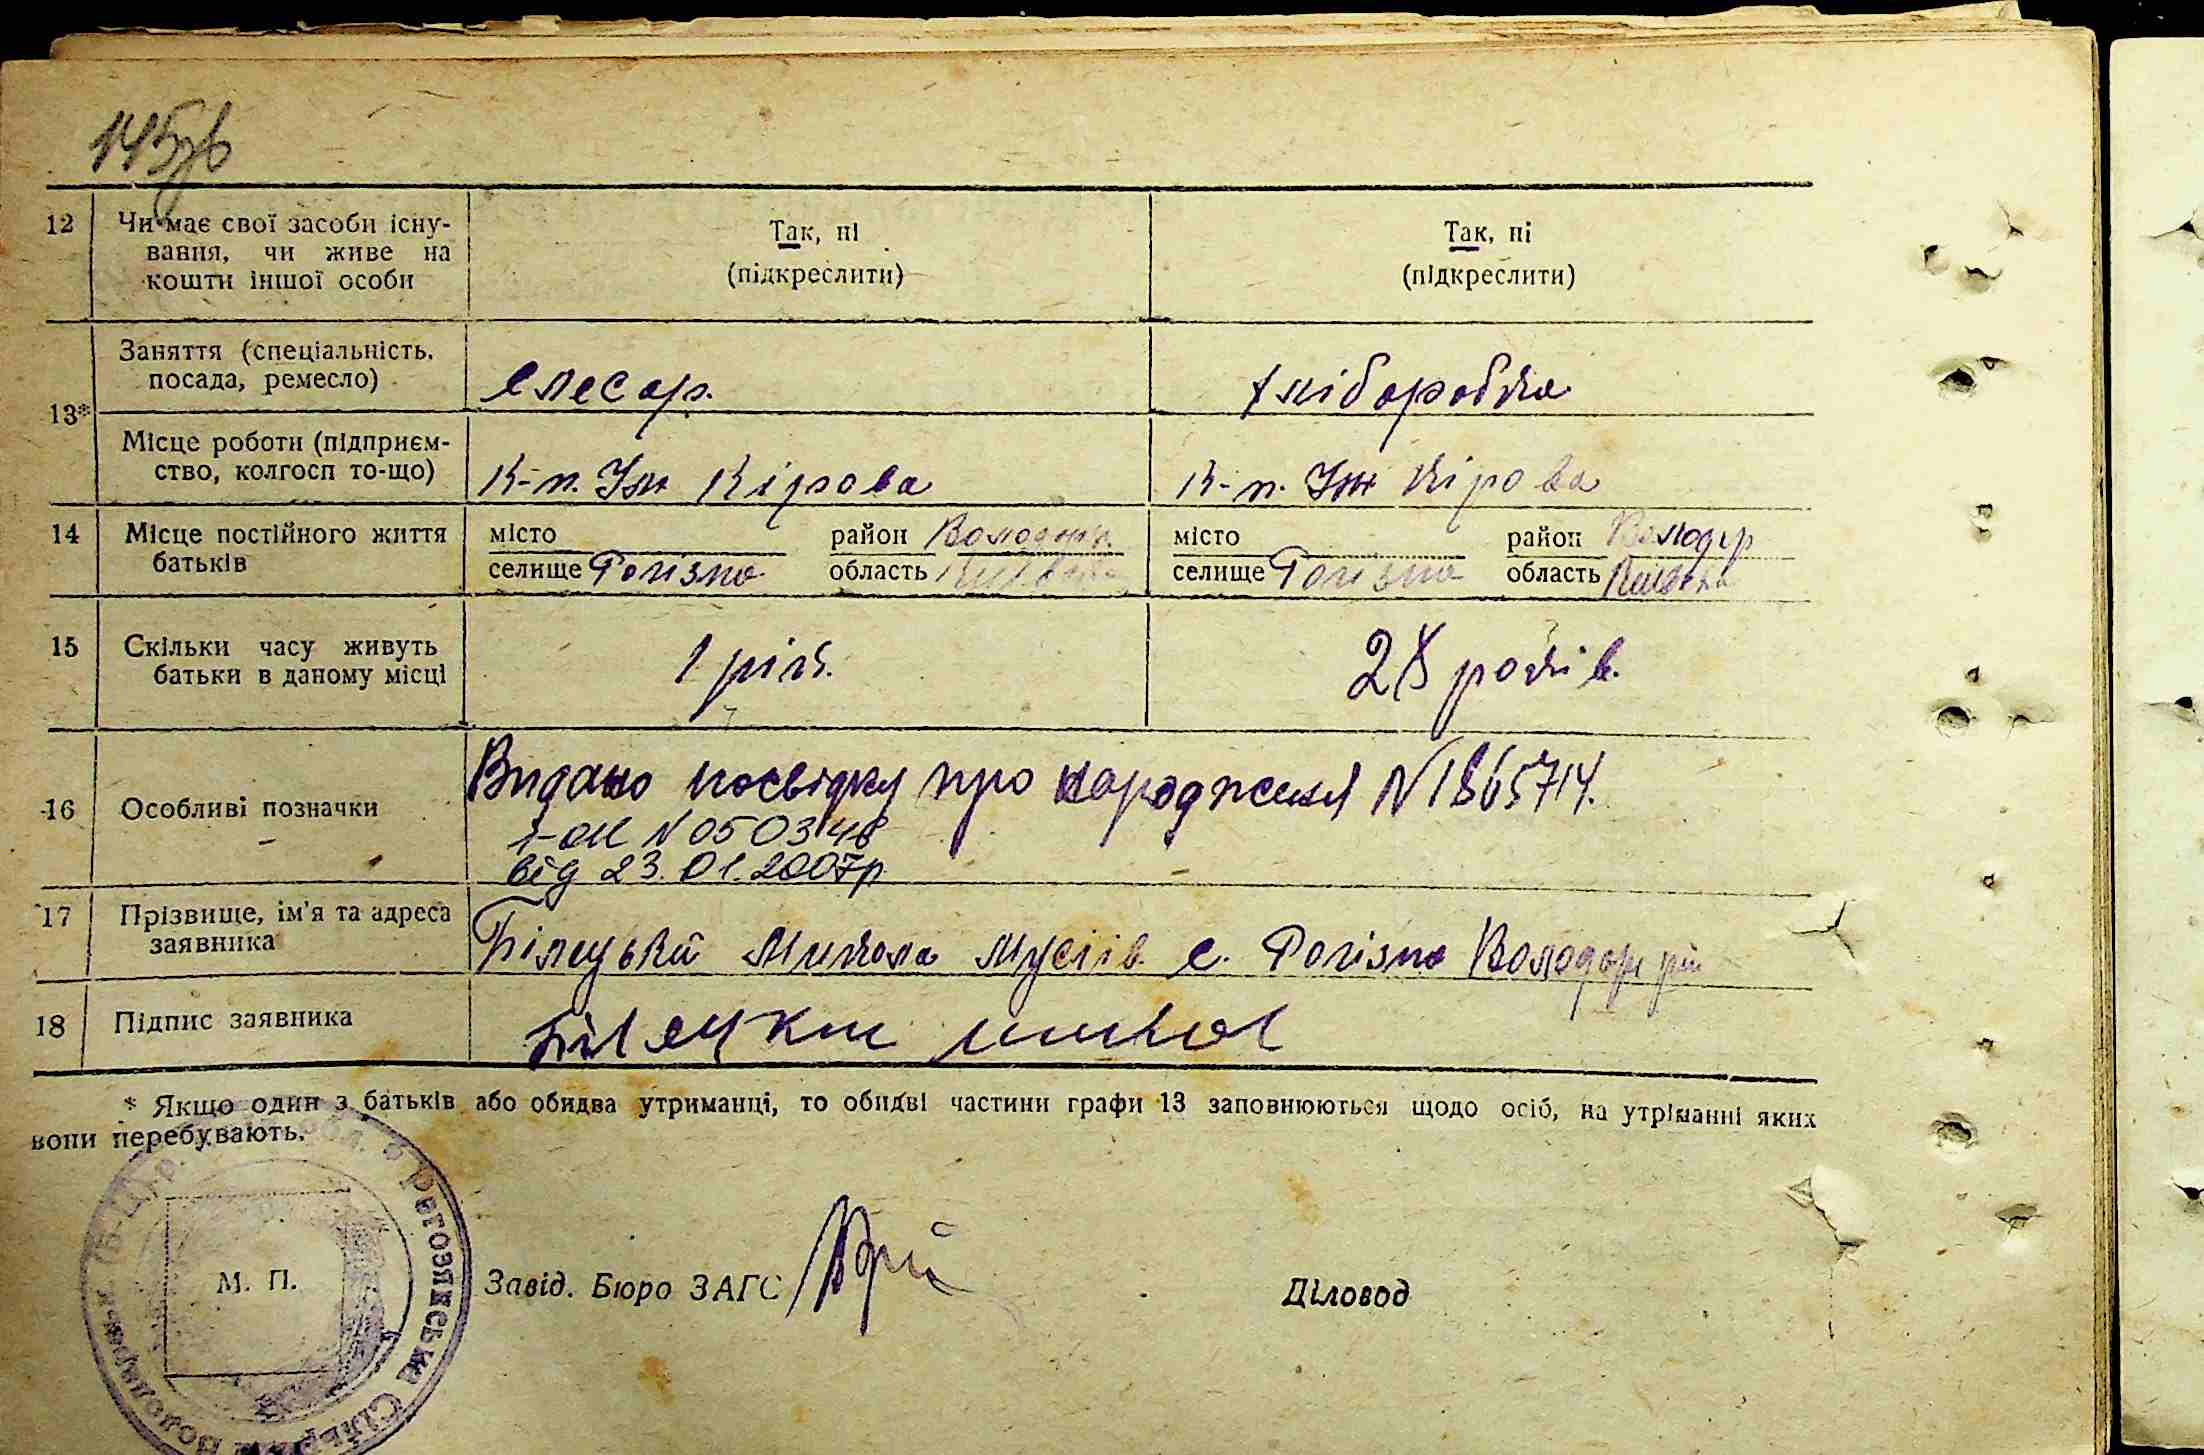 145зв
12 Чи має свої засоби існу-
вання, чи живе на
кошти іншої особи
Так, ні
(підкреслити)
Так, ні
(підкреслити)
13*
Заняття (спеціальність,
посада, ремесло)
Слесар.
хліборобка
Місце роботи (підприєм-
ство, колгосп то-що)
К-п. Ім Кірова
К-п. Ім Кірова
14 Місце постійного життя
батьків
місто район Володар.
селище Рогізна область Київська
місто район Володар
селище Рогізна область Київська
15 Скільки часу живуть
батьки в даному місці
1 рік.
28 років.
16 Особливі позначки
Видано посвідку про народження N 1865714.
І-ОК N 050348
від 23.01.2007р
17 Прізвище, ім'я та адреса
заявника
Білецький Микола Мусіїв. с. Рогізна Володар р-н
18 Підпис заявника
* Якщо один з батьків або обидва утриманці, то обидві частини графи 13 заповнюються щодо осіб, на утріманні яких
вони перебувають.
Рогозянська Сільр
М. П.
Завід. Бюро ЗАГС
Діловод